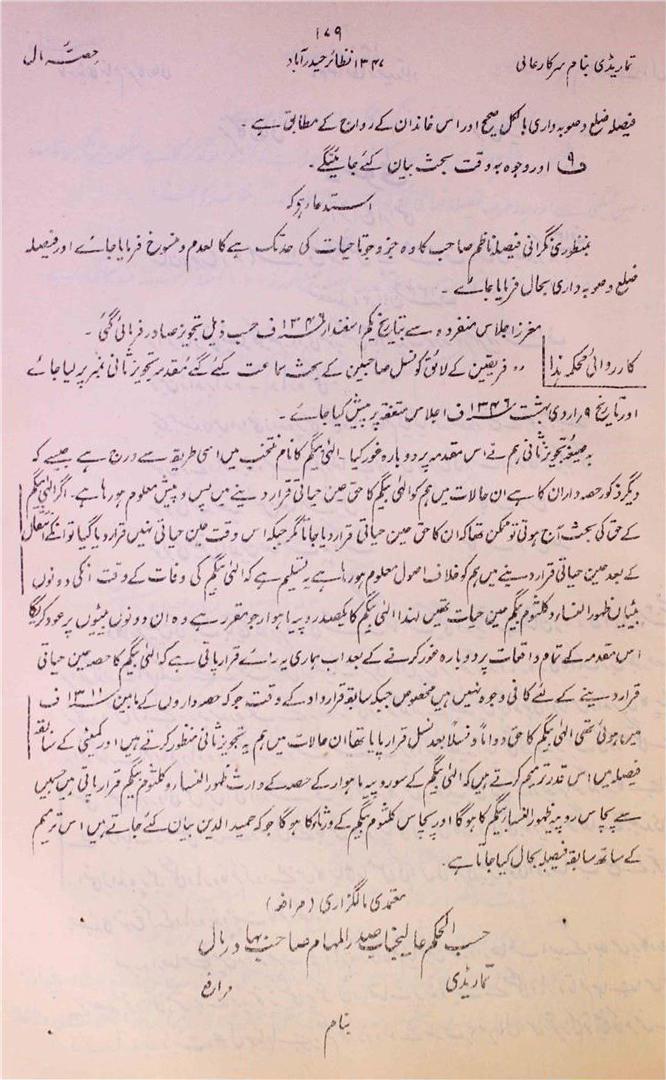 ۱۷۹
تماریڈی بنام سرکارعالی ۱۳۴۷ نظائر حیدرآباد حصہ مال
فیصلہ ضلع و صوبہ داری بالکل صحیح اور اس خاندان کے رواج کے مطابق ہے ۔
ف۹ اور وجوہ بوقت بحث بیان کئے جائینگے ۔
استدعا ہو کہ
بمنظوری نگرانی فیصلہ ناظم صاحب کا وہ جزو جو تا حیات کی حد تک ہے کالعدم و منسوخ فرمایا جائے اور فیصلہ
ضلع و صوبہ داری بحال فرمایا جائے ۔
معزز اجلاس منفردہ سے بتاریخ یکم اسفندار ۱۳۴۶ ف حسب ذیل تجویز صادر فرمائی گئی ۔
کارروائی محکمہ ہذا " فریقین کے لائق کونسل صاحبین کے بحث سماعت کئے گئے مقدمہ تجویز ثانی نمبر پر لیا جائے
اور تاریخ ۹ اردی بہشت ۱۳۴۶ ف اجلاس متفقہ پر پیش کیا جائے ۔
بہ صیغہ تجویز ثانی ہم نے اس مقدمہ پر دوبارہ غور کیا ۔ الہٰی بیگم کا نام منتخب میں اسی طریقہ سے درج ہے جیسے کہ
دیگر ذکور حصہ داران کا ہے ان حالات میں ہم کو الہٰی بیگم کا حق حین حیاتی قرار دینے میں پس و پیش معلوم ہو رہا ہے ۔ اگر الہٰی بیگم
کے حق کی بحث آج ہوتی تو ممکن تھا کہ ان کا حق حین حیاتی قرار دیا جاتا مگر جبکہ اس وقت حین حیاتی نہیں قرار دیا گیا تو انکے انتقال
کے بعد حین حیاتی قرار دینے میں ہم کو خلاف اصول معلوم ہو رہا ہے یہ تسلیم ہے کہ الہٰی بیگم کی وفات کے وقت انکی دونوں
بیٹیاں ظہور النساء و کلثوم بیگم حین حیات تھیں لہذا الہٰی بیگم کا یکصد روپیہ ماہوار جو مقرر ہے وہ ان دونوں بیٹیوں پر عود کریگا
اس مقدمہ کے تمام واقعات پر دوبارہ غور کرنے کے بعد اب ہماری یہ رائے قرار پاتی ہے کہ الہٰی بیگم کا حصہ حین حیاتی
قرار دینے کے لئے کافی وجوہ نہیں ہیں مخصوص جبکہ سابقہ قرارداد کے وقت جو کہ حصہ داروں کے مابین ۱۳۱۱ ف
میں ہوئی تھی الہٰی بیگم کا حق دواماً و نسلاً بعد نسل قرار پایا تھا ان حالات میں ہم یہ تجویز ثانی منظور کرتے ہیں اور کمیٹی کے سابقہ
فیصلہ میں اس قدر ترمیم کرتے ہیں کہ الہٰی بیگم کے سو روپیہ ماہوار کے حصہ کے وارث ظہور النساء و کلثوم بیگم قرار پاتی ہیں جسمیں
سے پچاس روپیہ ظہور النساء بیگم کا ہوگا اور پچاس کلثوم بیگم کے ورثاء کا ہوگا جو کہ حمید الدین بیان کئے جاتے ہیں اس ترمیم
کے ساتھ سابقہ فیصلہ بحال کیا جاتا ہے ۔
معتمدی مالگزاری (مرافعہ)
حسب الحکم عالیجناب صدرالمہام صاحب بہادر مال
تماریڈی مرافع
بنام